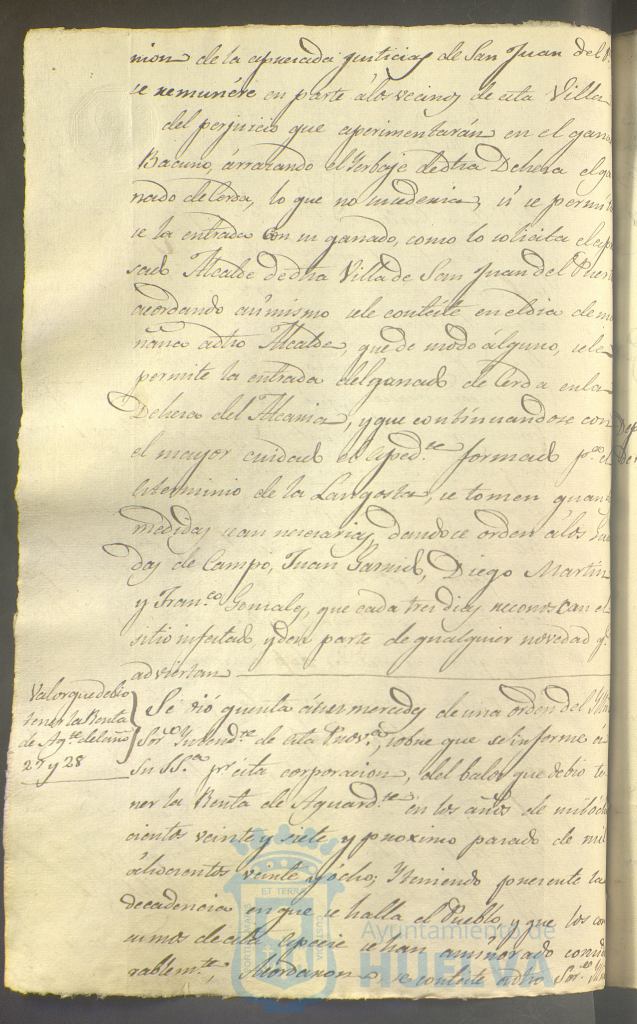 nion de la apreciada justicias de San Juan del P
se remunére en parte á los vecinos de esta Villa
del perjuicio que aperimentarán en el gana
Bacuno, árrazando el Yerbaje de dha Dehesa el ga
nado de Cerda, lo que no sucederia, si se permi
se la entrada con su ganado, como lo solicita el
sado Alcalde de dha Villa de San Juan del Puer
acordando asimismo se le conteste en el dia de ma
ñana a dho Alcalde, que de modo álguno, se le
permite la entrada del ganado de Cerda en la
Dehesa del Alcania, y que continuandose con
el mayor cuidado el Exped.te formado p.a el
Esterminio de la Langosta, se tomen quan
medidas sean necesarias, dandose orden á los
das de Campo, Juan Garrido, Diego Martin
y Fran.co Gonzales, que cada tres dias reconoscan el
sitio infestado, y den parte de qualquier novedad q.e
adviertan
Valor que debio
tener la Renta
de Ag.te del año
27 y 28
Se vió quenta á sus mercedes de una orden del
Sor Yntend.te de esta Prov.a, sobre que se informe á
Su SS.a pr esta corporacion, del balor que debio te
ner la Renta de Aguard.te en los años de mil ócho
cientos veinte y siete y proximo pasado de mil
óchocientos veinte y ócho; Yteniendo presente la
decadencia en que se halla el Pueblo, y que los con
sumos de esta especie se han aminorado conside
rablem.te; Acordaron se conteste a dho Sor
ET TERRA
Ayuntamiento de
HUELVA